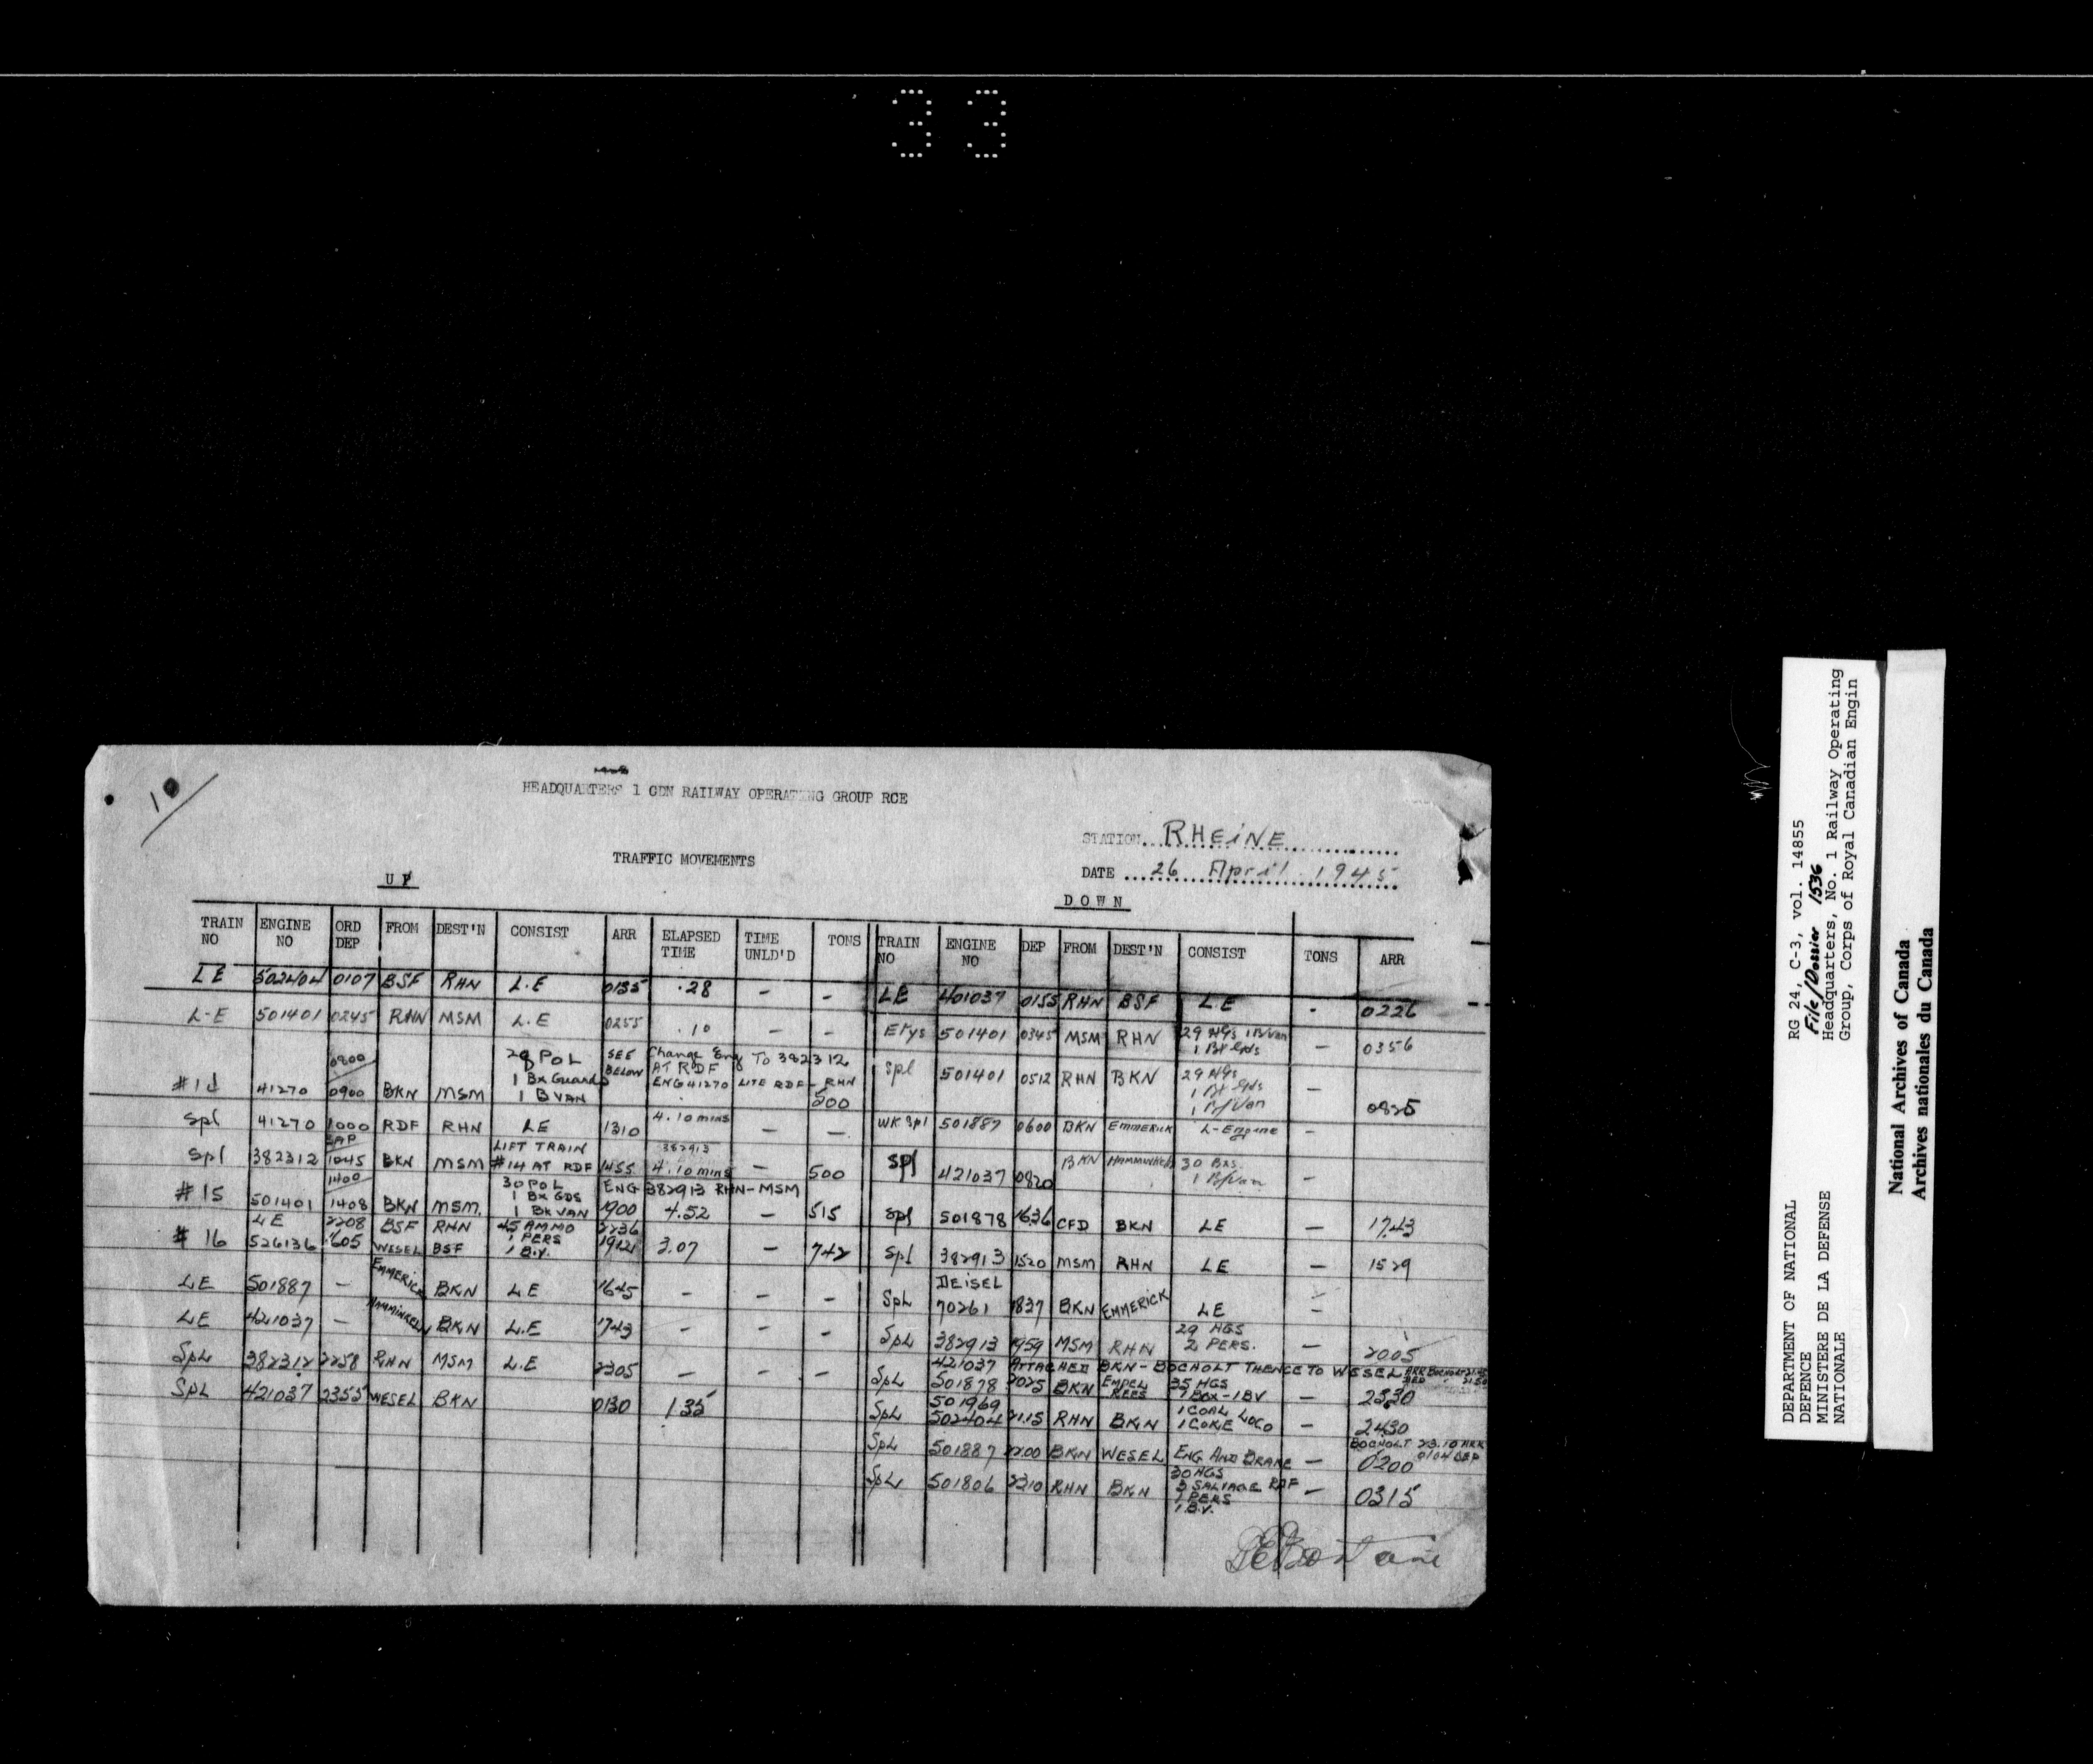 33
10
HEADQUARTERS 1 CDN RAILWAY OPERATING GROUP RCE
STATION RHEINE
TRAFFIC MOVEMENTS
DATE 26 April 1945
UP
DOWN
TRAIN NO ENGINE NO ORD DEP FROM DEST'N CONSIST ARR ELAPSED TIME TIME UNLD'D TONS TRAIN NO ENGINE NO DEP FROM DEST'N CONSIST TONS ARR
LE 502404 0107 BSF RHN L.E 0135 .28 - - LE 401037 0155 RHN BSF LE - 0226
L-E 501401 0245 RHN MSM L.E 0255 .10 - - 501401 0345 MSM RHN 29 1 B/Van - 0356
0800 28 POL SEE BELOW Change Eng To 382312
AT RDF
1 Bx Guards ENG 41270 LITE RDF - RHN
41270 0900 BKN MSM 1 B VAN 500
Spl 501401 0512 RHN BKN 29 1 B/Van - 0825
Spl 41270 1000 RDF RHN LE 1310 4.10 mins - - WK Spl 501887 0600 BKN EMMERICK L-Engine -
LIFT TRAIN 382913
Spl 382312 1045 BKN MSM #14 AT RDF 1455 4.10 mins - 500 Spl 421037 0820 BKN 30 1 B/Van -
1400 30 POL ENG 382913 RHN-MSM
1 Bx GDS
#15 501401 1408 BKN MSM. 1 BK VAN 1900 4.52 - 515 Spl 501878 1636 CFD BKN LE - 1743
LE 2208 BSF RHN 45 AMMO 2236
1 PERS
#16 526136 1605 WESEL BSF 1 B.V. 1912 3.07 - 742 Spl 382913 1520 MSM RHN LE - 1529
LE 501887 - EMMERICK BKN LE 1645 - - - SpL DEISEL 70261 1837 BKN EMMERICK LE -
LE 421037 - BKN L.E 1743 - - - SpL 382913 1959 MSM RHN 29 HGS 2 PERS. - 2005
SpL 382312 2258 RHN MSM L.E 2305 - - -
421037 ATTACHED BKN - BOCHOLT THENCE TO WESEL
SpL 501878 2025 BKN EMPEL REES 35 HGS 1 BOX - 1 BV - 2330
SpL 421037 2355 WESEL BKN 0130 1.35
SpL 501969 502404 2115 RHN BKN 1 COAL 1 COKE LOCO - 2430
SpL 501887 2200 BKN WESEL ENG AND BRAKE - BOCHOLT 23.10 ARR 0104 DEP 0200
SpL 501806 2310 RHN BKN 30 HGS 3 SALVAGE RDF 1 PERS 1 B.V. - 0315
RG 24, C-3, vol. 14855
File/Dossier 1536
Headquarters, No. 1 Railway Operating
Group, Corps of Royal Canadian Engin
DEPARTMENT OF NATIONAL
DEFENCE
MINISTERE DE LA DEFENSE
NATIONALE
National Archives of Canada
Archives nationales du Canada